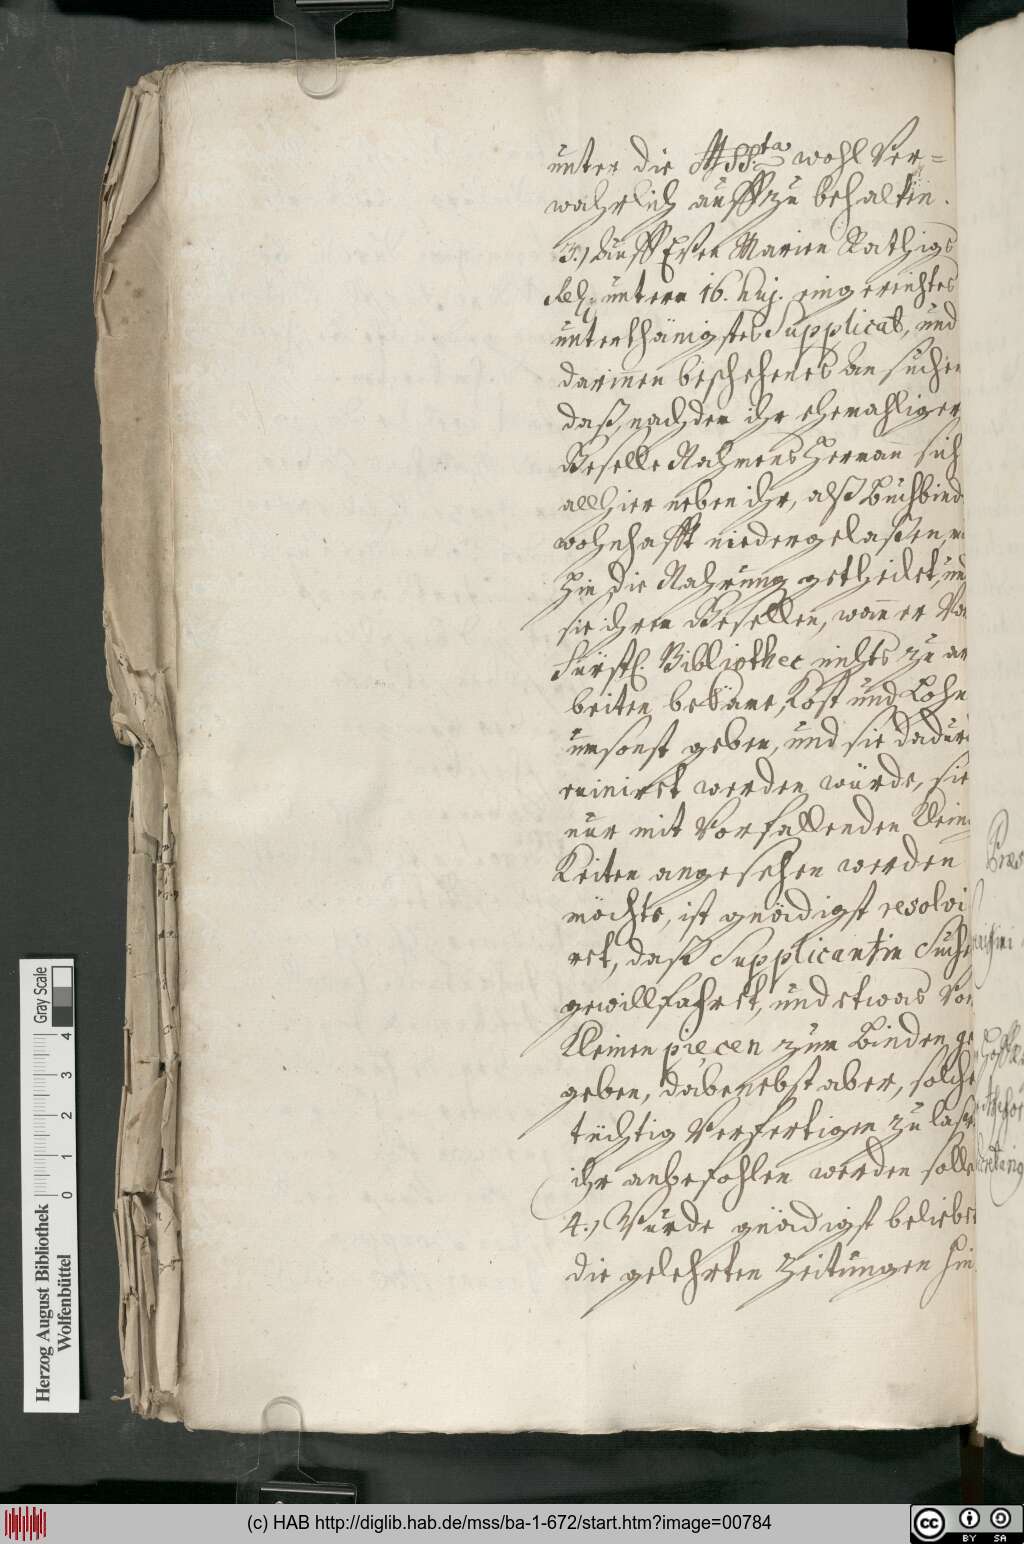 unter die MSSta wohl Ver=
wahrlich auffzu behalten.
3.) Auff Even Marien Rathigs
untern 16. huj. eingereichtes
unterthänigstes Supplicat, und
darinnen beschehenes An suchen
daß, nachdem ihr ehemahliger
Geselle Nahmens Hermann sich
allhier neben ihr, alß Buchbind
wohnhafft niedergelaßen,
hin die Nahrung getheilet, und
sie ihren Gesellen, wann er Von
Fürstl. Bibliothec nichts zu ar
beiten bekäme, Kost und Lohn
umsonst geben, und sie dadurch
ruiniret werden würde, sie
nur mit Vorfallenden Klein
Keiten angesehen werden
möchte, ist gnädigst resolvi
ret, daß Supplicantin Suchen
gewillfahret, und etwas Von
Kleinen piecen zum Binden ge
geben, dabenebst aber, solche
tüchtig Verfertigen zu laßen
ihr anbefohlen werden solle
4.) Wurde gnädigst beliebet
die gelehrten Zeitungen hin
Herzog August Bibliothek
Wolfenbüttel
0 1 2 3 4
Gray Scale
(c) HAB http://diglib.hab.de/mss/ba-1-672/start.htm?image=00784
cc BY SA